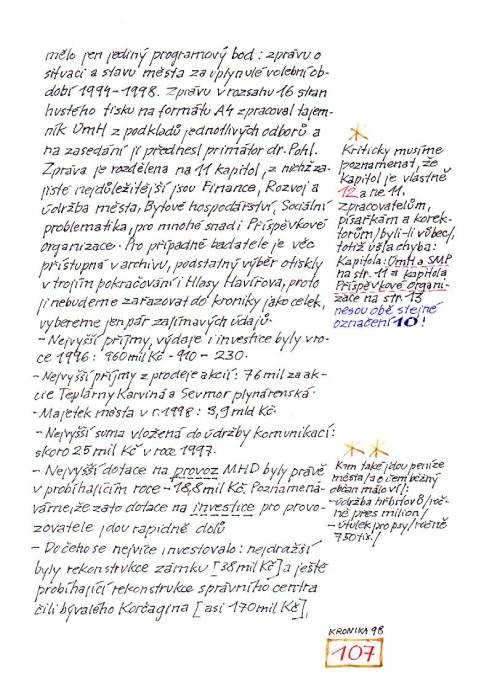 mělo jen jediný programový bod : zprávu o
situaci a stavu města za uplynulé volební ob-
dobí 1994-1998. Zprávu v rozsahu 16 stran
hustého tisku na formátu A4 zpracoval tajem-
ník ÚmH z podkladů jednotlivých odborů a
na zasedání ji přednesl primátor dr. Pohl.
Zpráva je rozdělena na 11 kapitol, z nichž za-
jisté nejdůležitější jsou Finance, Rozvoj a
údržba města, Bytové hospodářství, Sociální
problematika, pro mnohé snad i Příspěvkové
organizace. Pro případné badatele je věc
přístupná v archivu, podstatný výběr otiskly
v trojím pokračování i Hlasy Havířova, proto
ji nebudeme zařazovat do kroniky jako celek,
vybereme jen pár zajímavých údajů.
- Nejvyšší příjmy, výdaje i investice byly v ro-
ce 1996 : 960 mil Kč - 910 - 230.
- Nejvyšší příjmy z prodeje akcií : 76 mil za ak-
cie Teplárny Karviná a Sevmor plynárenská.
- Majetek města v r. 1998 : 3,9 mld Kč.
- Nejvyšší suma vložená do údržby komunikací:
skoro 25 mil Kč v roce 1997.
- Nejvyšší dotace na provoz MHD byly právě
v probíhajícím roce - 18,8 mil Kč. Poznamená-
váme, že zato dotace na investice pro provo-
zovatele jdou rapidně dolů
- Do čeho se nejvíce investovalo : nejdražší
byly rekonstrukce zámku [38 mil Kč] a ještě
probíhající rekonstrukce správního centra
čili bývalého Korčagina [asi 170 mil Kč],
Kriticky musíme
poznamenat, že
kapitol je vlastně
12 a ne 11.
zpracovatelům,
písařkám a korek-
torům /byli-li vůbec/,
totiž ušla chyba:
Kapitola: ÚmH a SMP
na str. 11 a kapitola
Příspěvkové organi-
zace na str. 13
nesou obě stejné
označení 10!
Kam také jdou peníze
města /a o čem běžný
občan málo ví/ :
- údržba hřbitovů /roč-
ně přes milion/
- útulek pro psy /ročně
750 tis./
KRONIKA 98
107